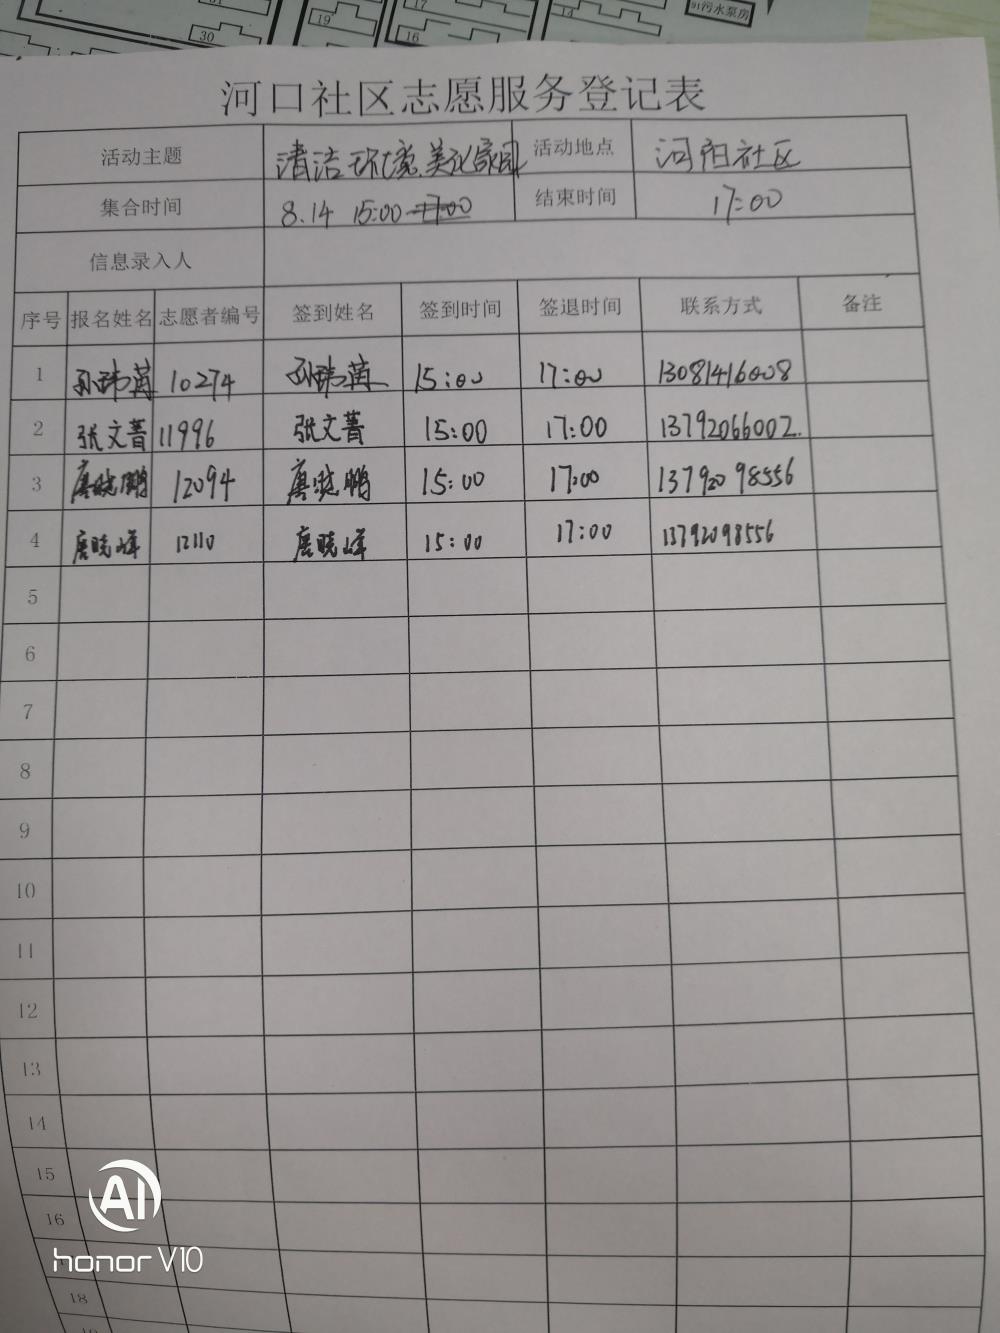 30
19
17
16
14
91污水泵房
河口社区志愿服务登记表
活动主题 清洁环境美化家园 活动地点 河阳社区
集合时间 8.14 15:00 17:00 结束时间 17:00
信息录入人
序号 报名姓名 志愿者编号 签到姓名 签到时间 签退时间 联系方式 备注
1 孙玮茵 10274 孙玮茵 15:00 17:00 13081416008
2 张文菁 11996 张文菁 15:00 17:00 13792066002.
3 唐晓鹏 12094 唐晓鹏 15:00 17:00 13792098556
4 唐晓峰 12110 唐晓峰 15:00 17:00 13792098556
5
6
7
8
9
10
11
12
13
14
15
16
18
AI
honor V10